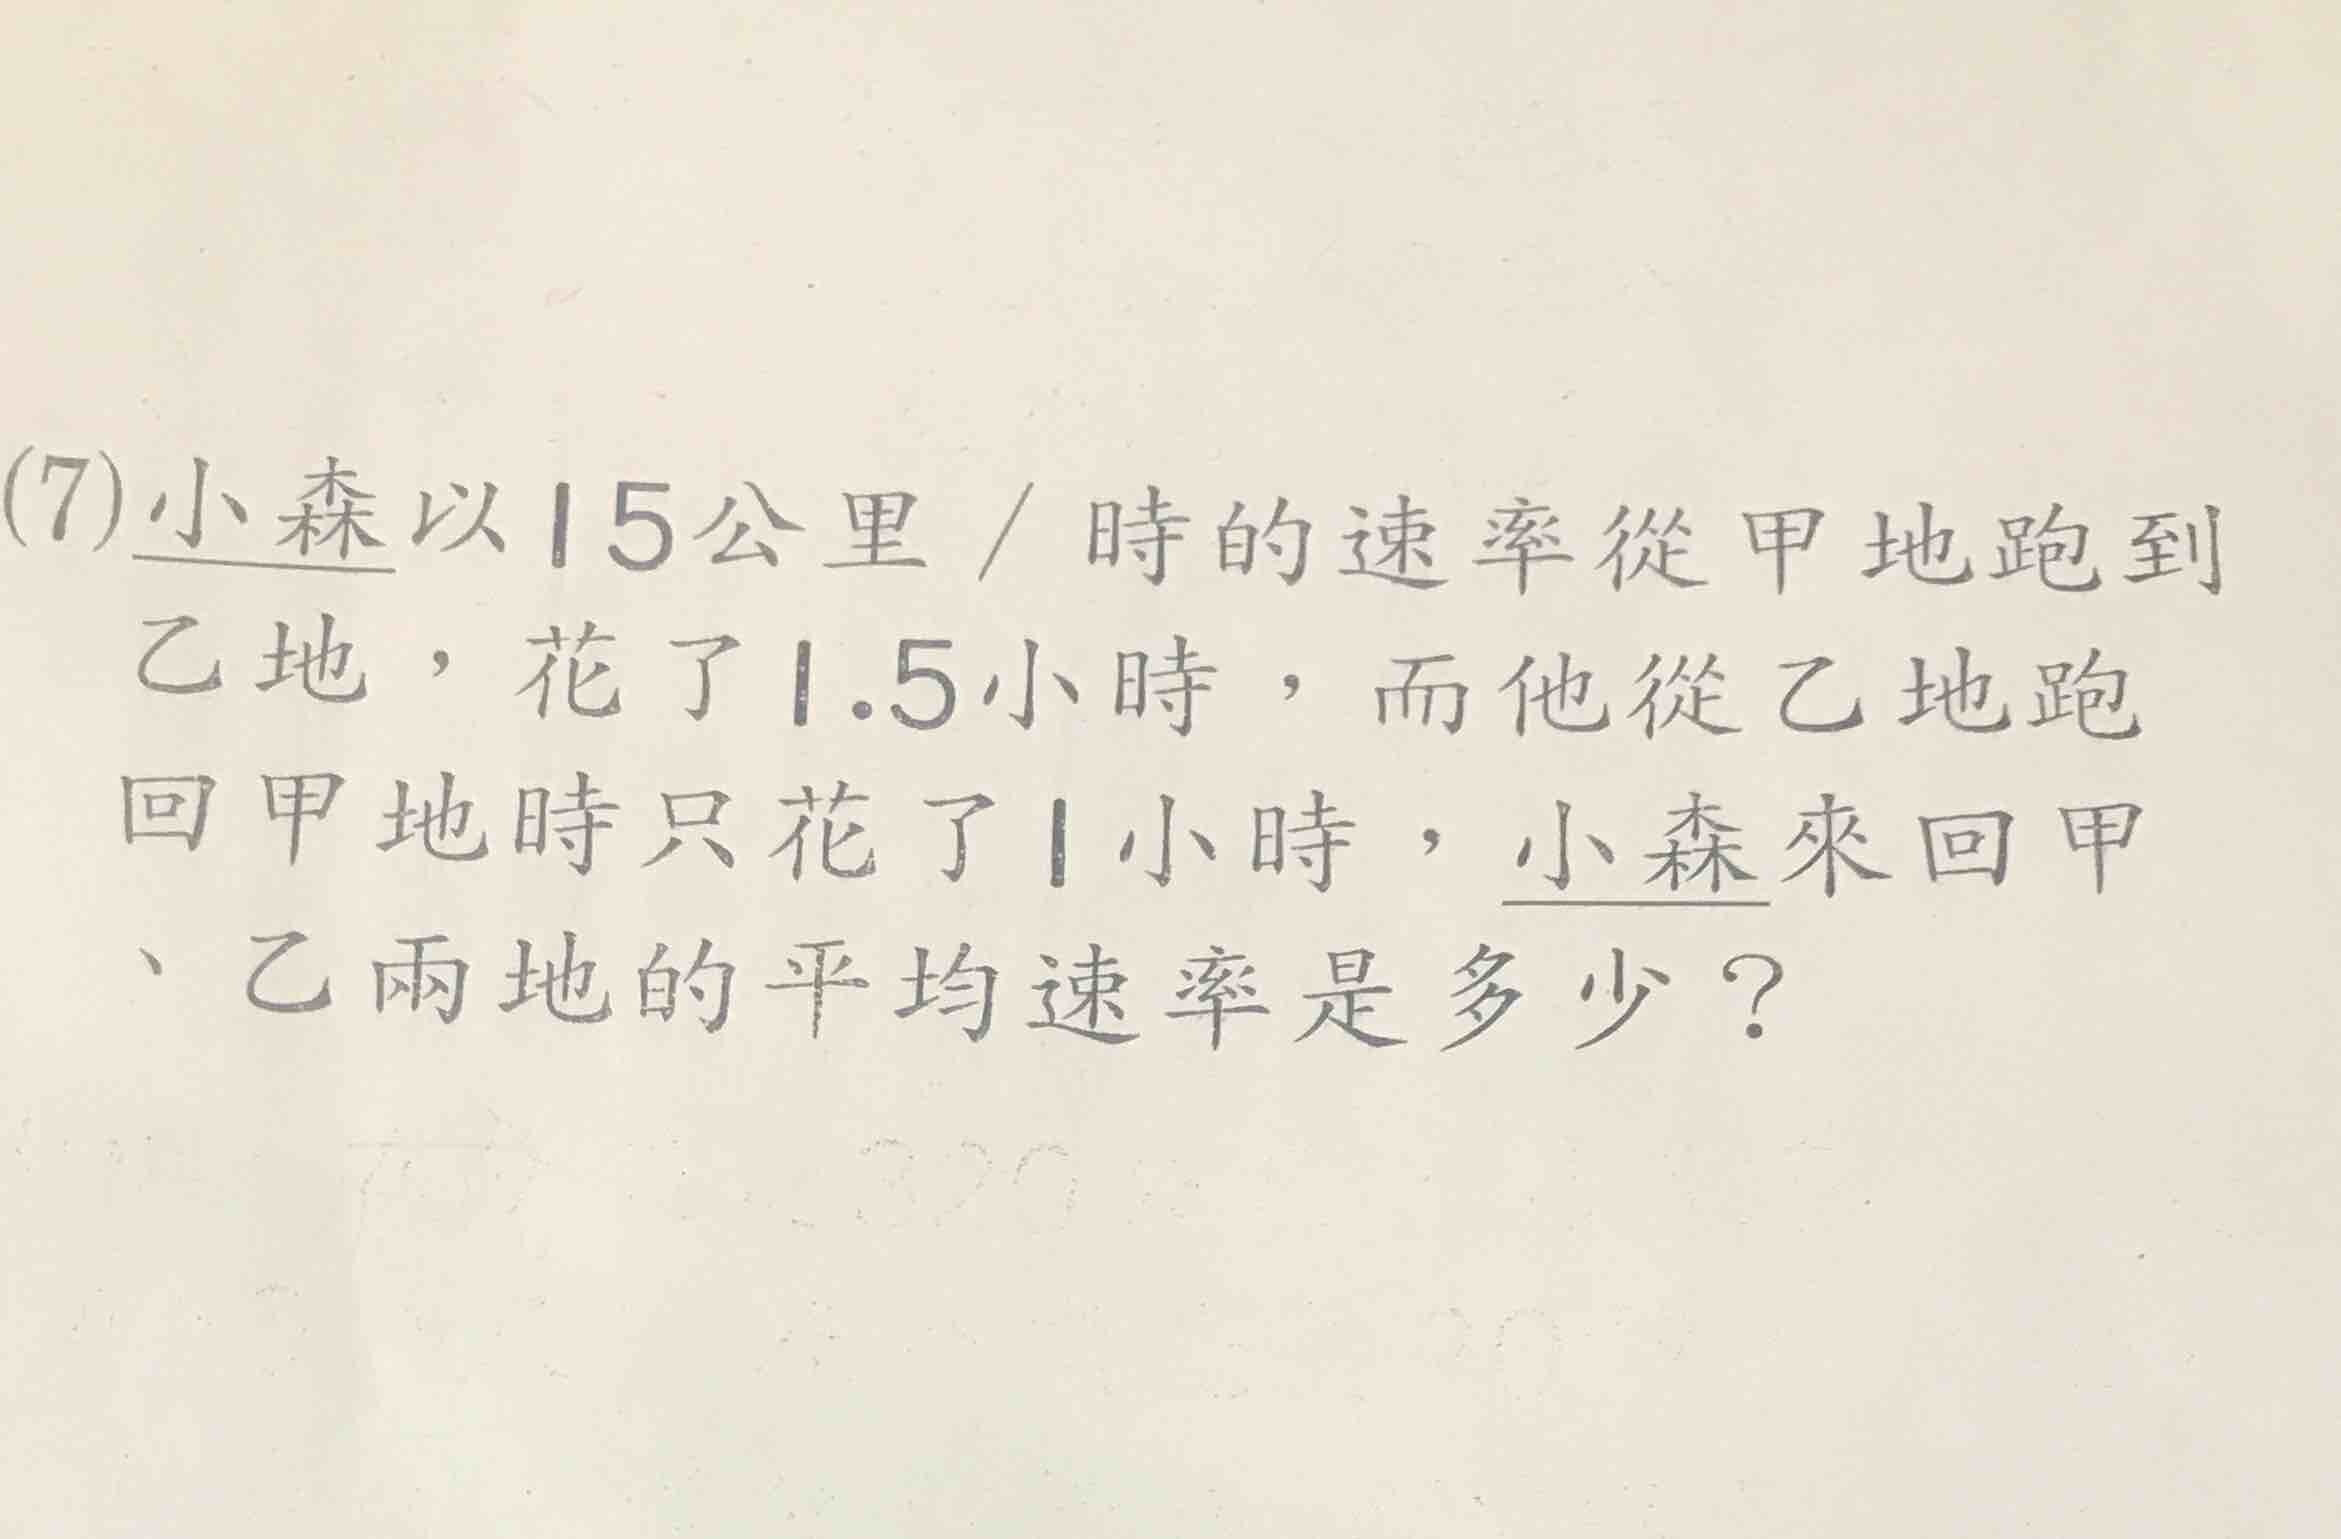 (7)小森以15公里/時的速率從甲地跑到
乙地，花了1.5小時，而他從乙地跑
回甲地時只花了1小時，小森來回甲
、乙兩地的平均速率是多少？